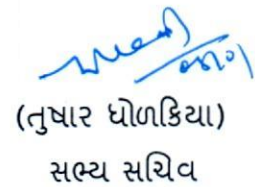 (તુષાર ધોળકિયા)
સભ્ય સચિવ